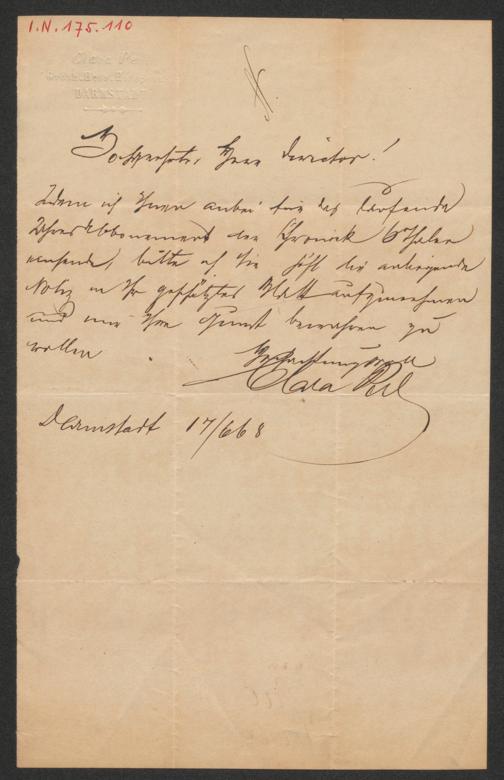 I.N. 175.110
Clara Perl
DARMSTADT
Hochgeehrter Herr Director!
Indem ich Ihnen anbei für das laufende
Jahresabbonement der Chronick 6 Thaler
einsende, bitte ich Sie höfl die anliegende
Notiz in Ihr geschätztes Blatt aufzunehmen
und mir Ihre Gunst bewahren zu
wollen
Hochachtungsvoll
Clara Perl
Darmstadt 17/6 68